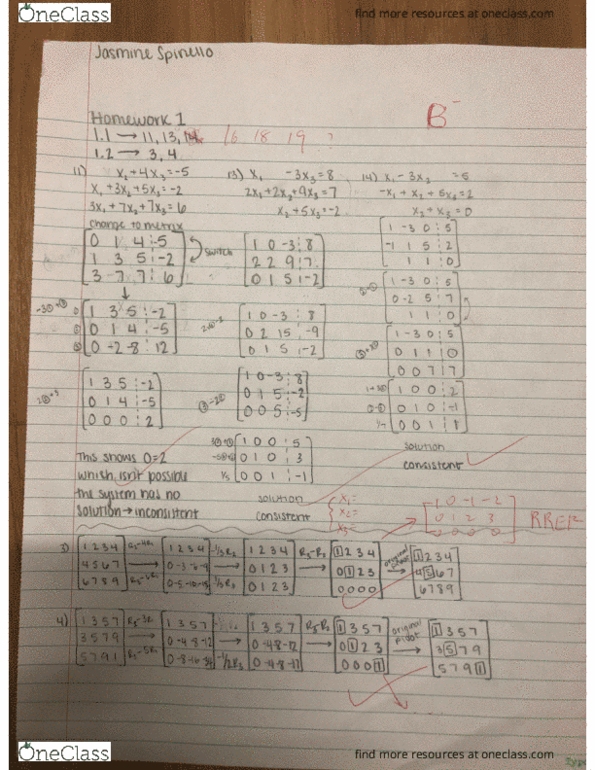 OneClass
find more resources at oneclass.com
Jasmine Spinello
B-
Homework 1
1.1 → 11, 13, 14 16 18 19 ?
1.2 → 3, 4
11) x₂+4x₃=-5
x₁+3x₂+5x₃=-2
3x₁+7x₂+7x₃=6
change to metrix
0 1 4 -5
1 3 5 -2
3 7 7 6
switch
1 3 5 -2
0 1 4 -5
0 -2 -8 12
1 3 5 -2
0 1 4 -5
0 0 0 2
This shows 0=2
which isn't possible
the system has no
solution → inconsistent
13) x₁ -3x₃=8
2x₁+2x₂+9x₃=7
x₂+5x₃=-2
1 0 -3 8
2 2 9 7
0 1 5 -2
1 0 -3 8
0 2 15 -9
0 1 5 -2
1 0 -3 8
0 1 5 -2
0 0 5 -5
1 0 0 5
0 1 0 3
0 0 1 -1
solution
consistent
x₁=
x₂=
x₃=
14) x₁-3x₂ =5
-x₁+x₂+5x₃=2
x₂+x₃=0
1 -3 0 5
-1 1 5 2
1 1 0
1 -3 0 5
0 -2 5 7
1 1 0
1 -3 0 5
0 1 1 0
0 0 7 7
1 0 0 2
0 1 0 -1
0 0 1 1
solution
consistent
1 0 -1 -2
0 1 2 3
0 0 0 0
RREF
3) 1 2 3 4
4 5 6 7
6 7 8 9
R₂-4R₁
1 2 3 4
0 -3 -6 -9
0 -5 -10 -15
-1/3 R₂
1 2 3 4
0 1 2 3
0 1 2 3
R₃-R₂
1 2 3 4
0 1 2 3
0 0 0 0
original
1 2 3 4
4 5 6 7
6 7 8 9
4) 1 3 5 7
3 5 7 9
5 7 9 1
R₃-5R₁
1 3 5 7
0 -4 -8 -12
0 -8 -16 -34
-1/2 R₃
1 3 5 7
0 -4 -8 -12
0 -4 -8 -17
R₃-R₂
1 3 5 7
0 1 2 3
0 0 0 1
original
pivot
1 3 5 7
3 5 7 9
5 7 9 1
OneClass
find more resources at oneclass.com